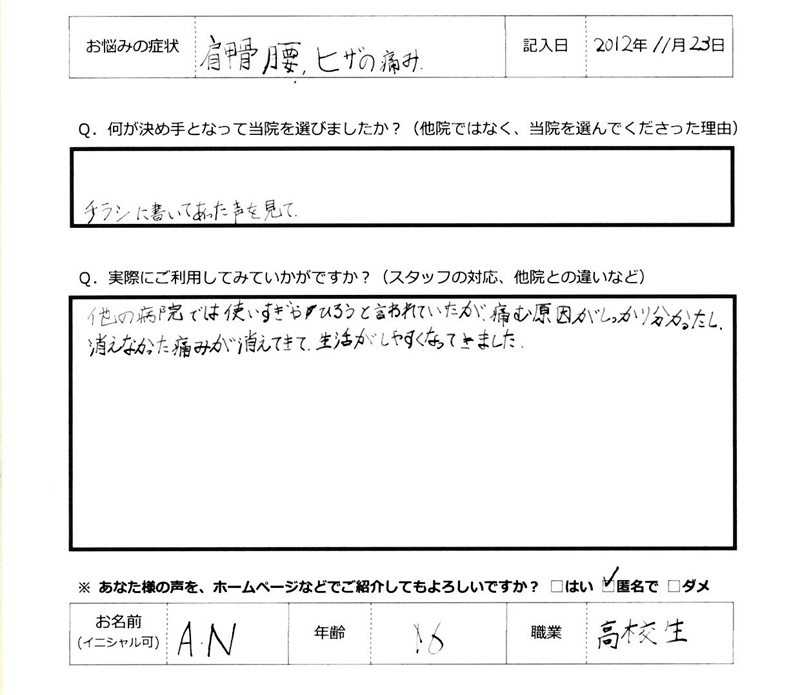 お悩みの症状 肩甲骨 腰, ヒザの痛み. 記入日 2012年 11月 23日
Q．何が決め手となって当院を選びましたか？（他院ではなく、当院を選んでくださった理由）
チラシに書いてあった声を見て.
Q．実際にご利用してみていかがですか？（スタッフの対応、他院との違いなど）
他の病院では使いすぎやひろうと言われていたが、痛む原因がしっかり分かったし、
消えなかった痛みが消えてきて、生活がしやすくなってきました.
※ あなた様の声を、ホームページなどでご紹介してもよろしいですか？ □はい ☑匿名で □ダメ
お名前 A.N 年齢 16 職業 高校生
(イニシャル可)